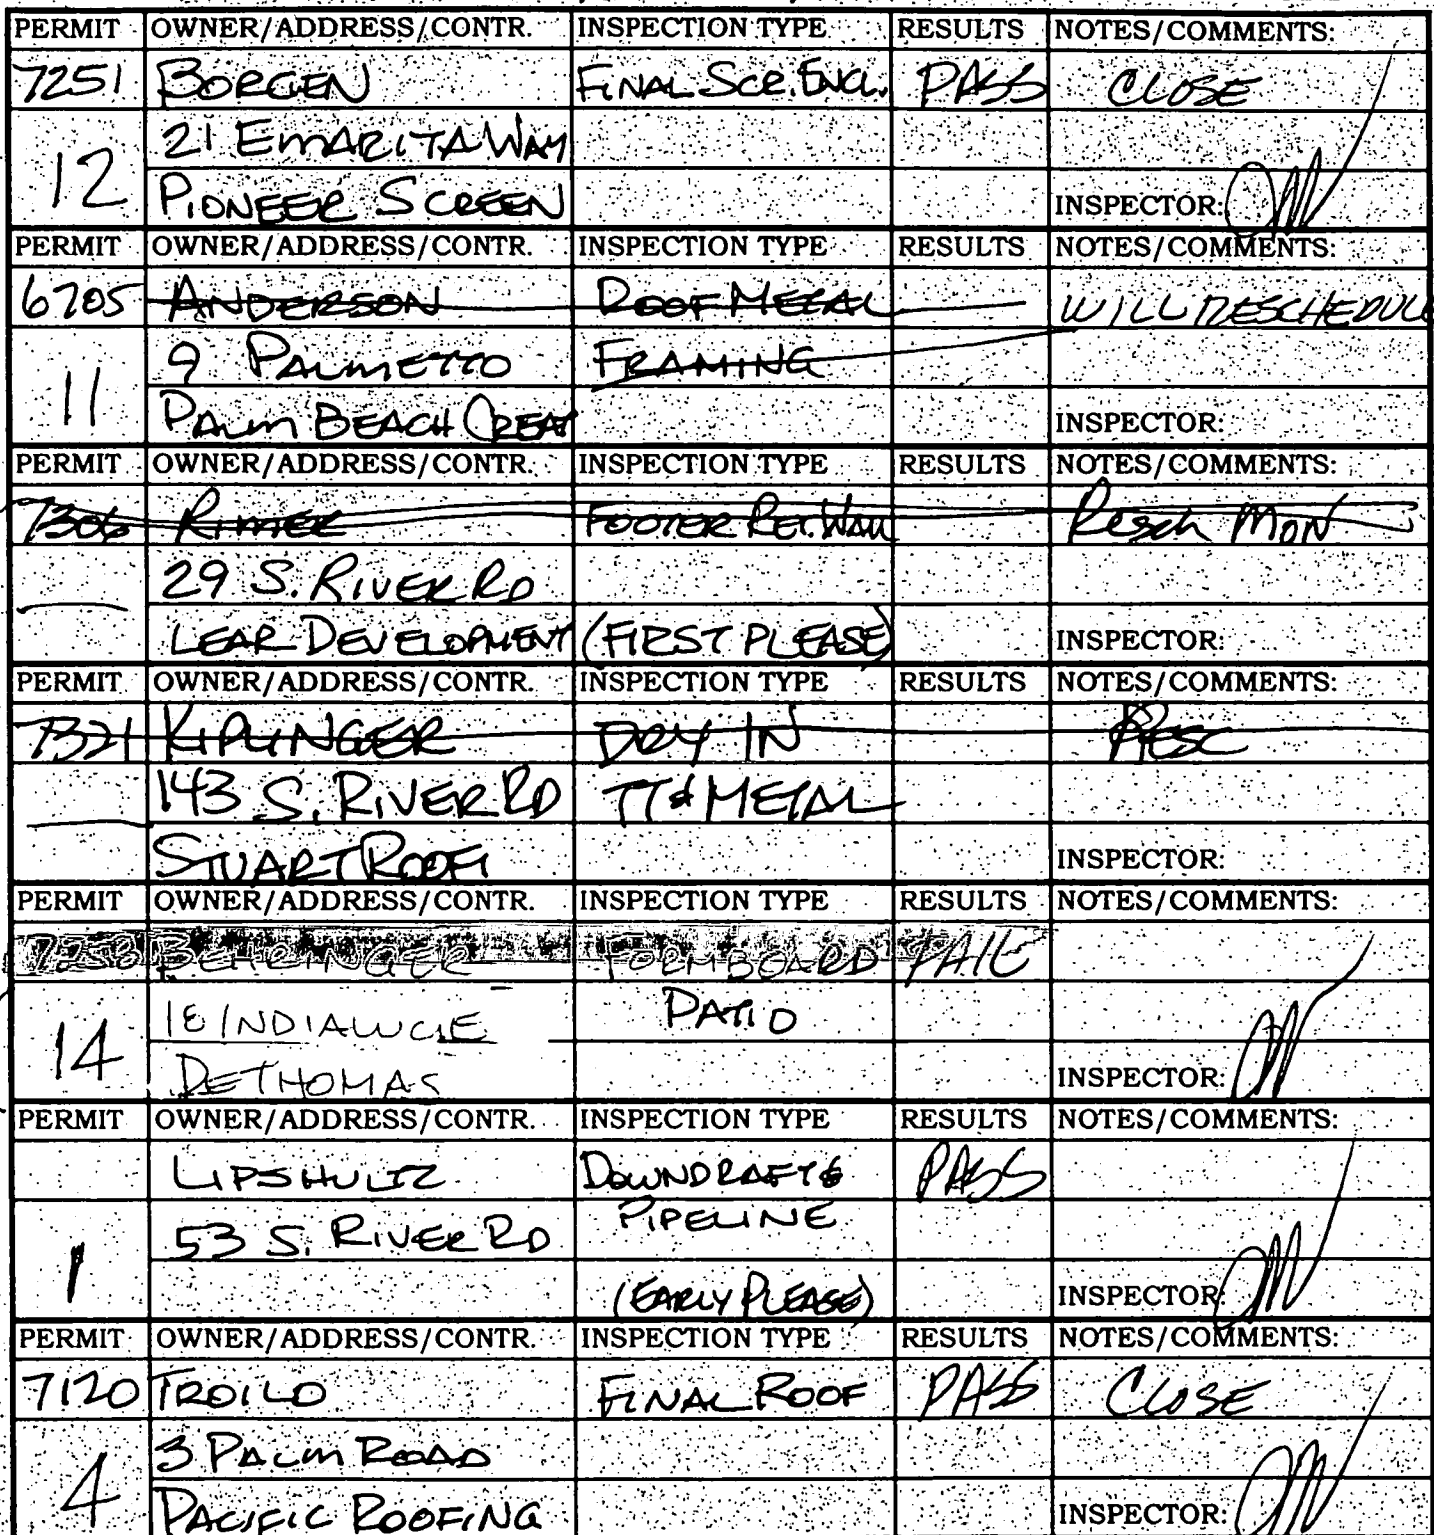 PERMIT OWNER/ADDRESS/CONTR. INSPECTION TYPE RESULTS NOTES/COMMENTS:
7251 BORGEN FINAL SCR. ENCL. PASS CLOSE
21 EMARITA WAY
12 PIONEER SCREEN INSPECTOR:
PERMIT OWNER/ADDRESS/CONTR. INSPECTION TYPE RESULTS NOTES/COMMENTS:
6705 ANDERSON ROOF METAL WILL RESCHEDULE
9 PALMETTO FRAMING
11 PALM BEACH CREAT INSPECTOR:
PERMIT OWNER/ADDRESS/CONTR. INSPECTION TYPE RESULTS NOTES/COMMENTS:
7306 RIMER FOOTER RET. WALL Resch MON
29 S. RIVER RD
LEAR DEVELOPMENT (FIRST PLEASE) INSPECTOR:
PERMIT OWNER/ADDRESS/CONTR. INSPECTION TYPE RESULTS NOTES/COMMENTS:
7321 KIPLINGER DRY IN RESC
143 S. RIVER RD TT & METAL
STUART ROOF INSPECTOR:
PERMIT OWNER/ADDRESS/CONTR. INSPECTION TYPE RESULTS NOTES/COMMENTS:
7258 BEHRINGER FORMBOARD FAIL
18 INDIALUCIE PATIO
14 DETHOMAS INSPECTOR:
PERMIT OWNER/ADDRESS/CONTR. INSPECTION TYPE RESULTS NOTES/COMMENTS:
LIPSHULTZ DOWNDRAFT & PASS
53 S. RIVER RD PIPELINE
1 (EARLY PLEASE) INSPECTOR:
PERMIT OWNER/ADDRESS/CONTR. INSPECTION TYPE RESULTS NOTES/COMMENTS:
7120 TROILO FINAL ROOF PASS CLOSE
3 PALM ROAD
4 PACIFIC ROOFING INSPECTOR: